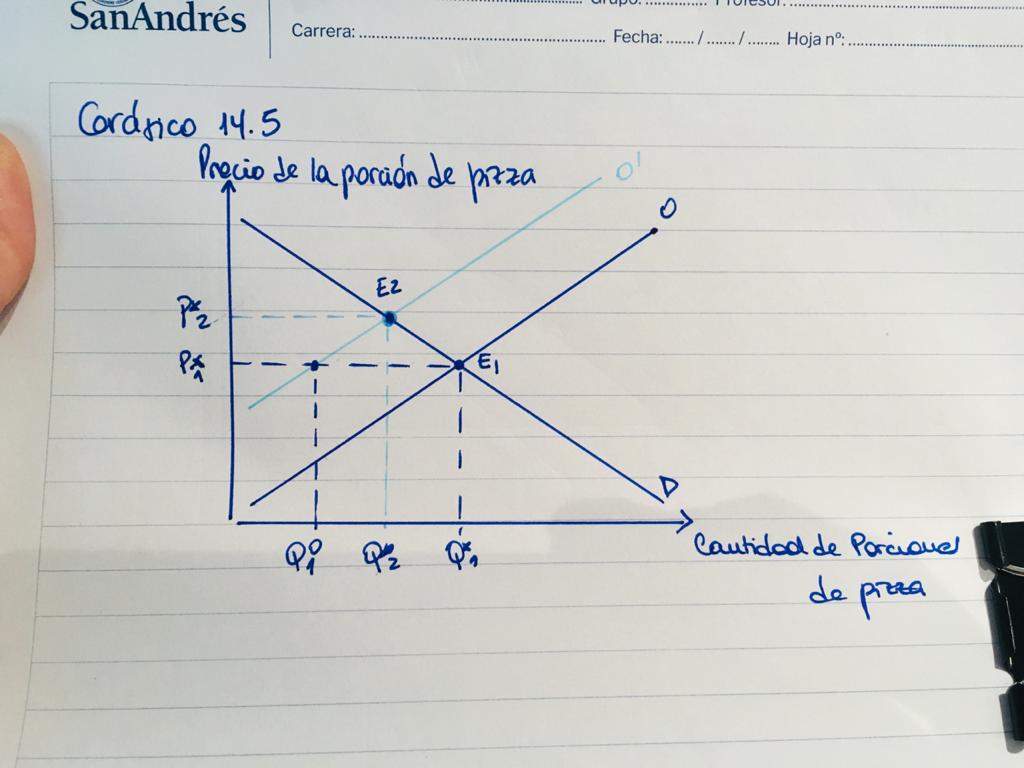 SanAndrés
Grupo: Profesor:
Carrera: Fecha: / / Hoja nº:
14.5
Precio de la porción de pizza
O'
O
E2
P*2
P*1
E1
D
QO1 Q*2 Q*1
Cantidad de Porciones
de pizza